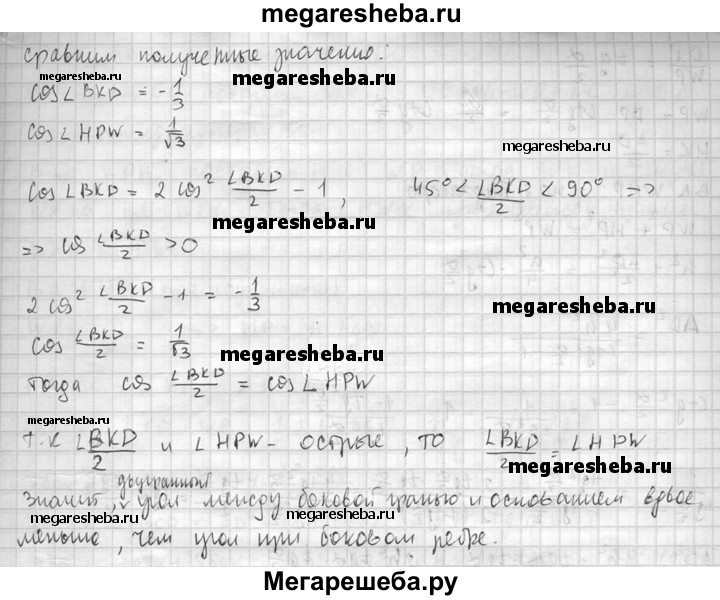 megaresheba.ru
сравним полученные значения:
megaresheba.ru
megaresheba.ru
cos∠BKD = -1/3
cos∠HPW = 1/√3
megaresheba.ru
cos∠BKD = 2 cos² ∠BKD/2 - 1, 45° < ∠BKD/2 < 90° =>
megaresheba.ru
=> cos ∠BKD/2 > 0
2 cos² ∠BKD/2 - 1 = -1/3
megaresheba.ru
cos ∠BKD/2 = 1/√3
megaresheba.ru
тогда cos ∠BKD/2 = cos∠HPW
megaresheba.ru
т.к ∠BKD/2 и ∠HPW - острые, то ∠BKD/2 = ∠HPW
megaresheba.ru
двугранный
значит, угол между боковой гранью и основанием вдвое
megaresheba.ru
megaresheba.ru
меньше, чем угол при боковом ребре.
Мегарешеба.ру